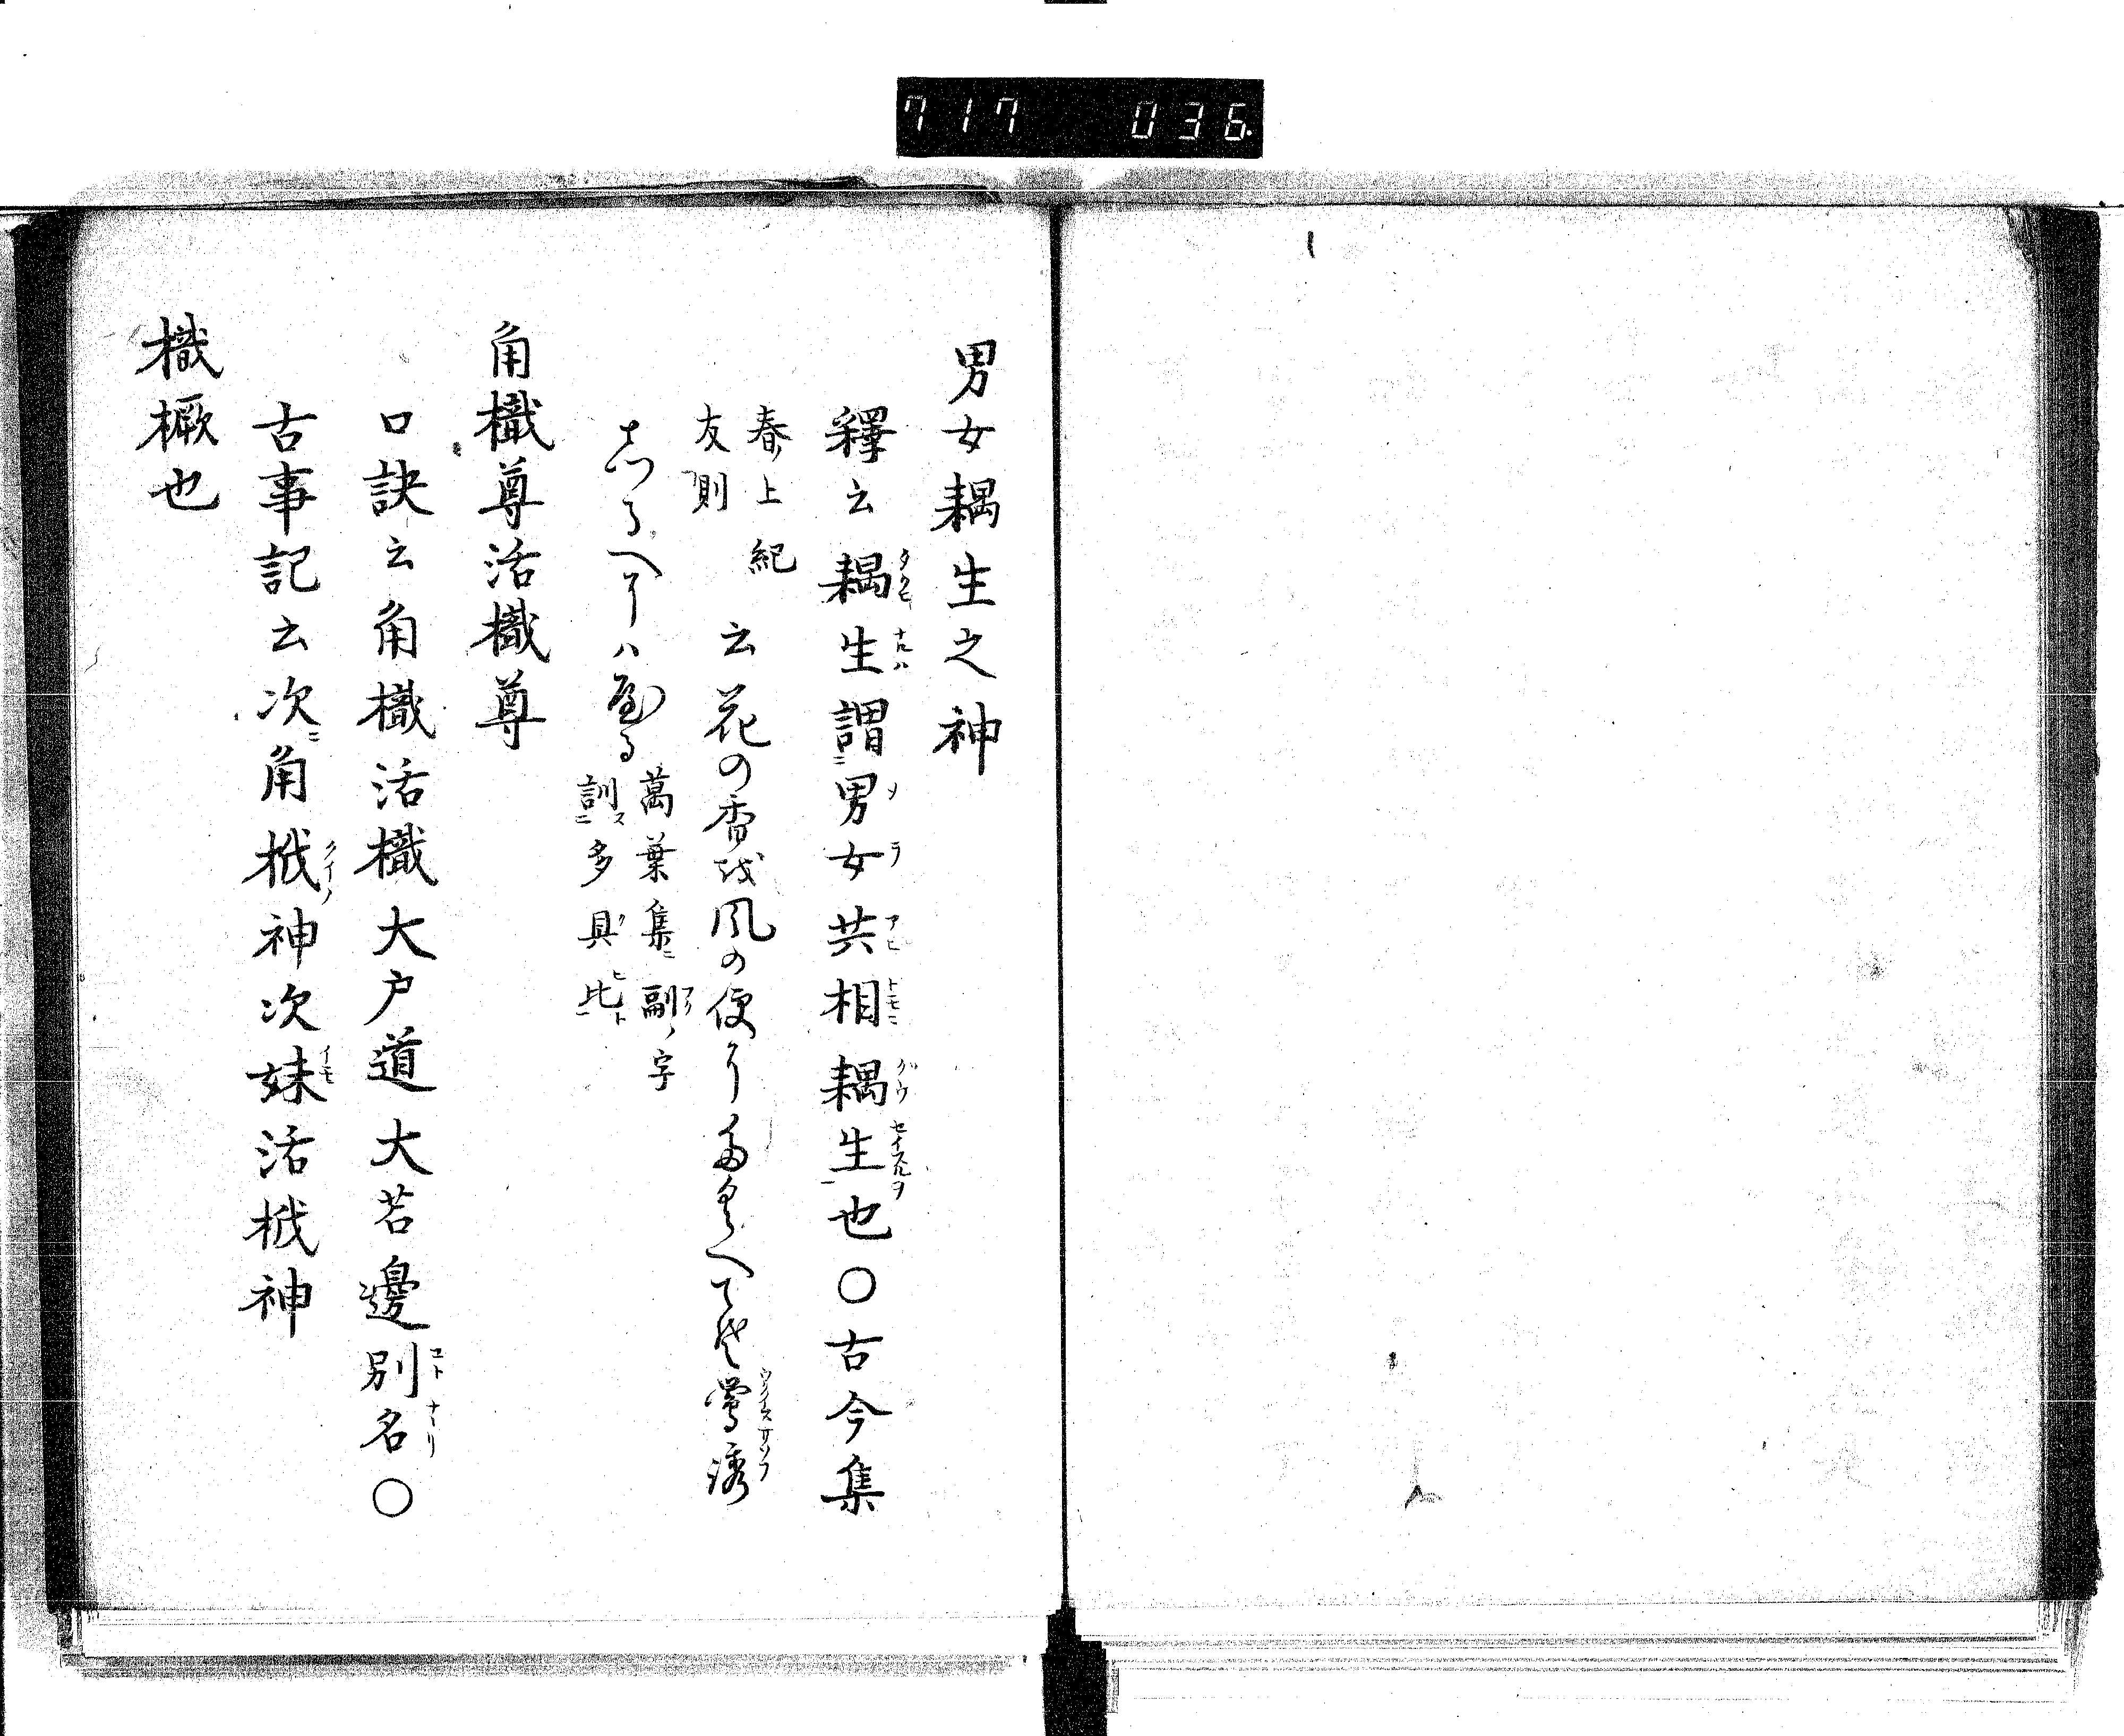 717 036.
男女耦生之神
釋云耦生謂男女共相耦生也○古今集
春上紀
友則
云花の香を風の便りにたくへてそ鶯誘
しるへにハやる
萬葉集ニ副ノ字
訓ス多具比ト
角樴尊活樴尊
口訣云角樴活樴大戸道大苫邊別名○
古事記云次ニ角杙神次妹活杙神
樴橛也